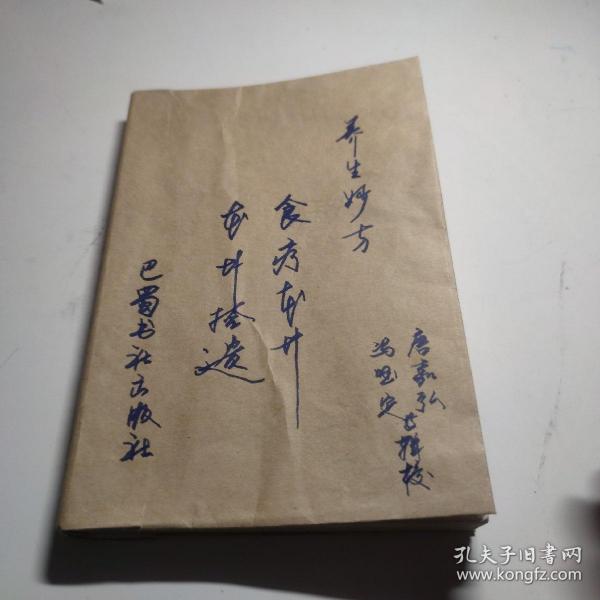 养生妙方
食疗本草
本草拾遗
唐嘉弘
冯 定
辑校
巴蜀书社出版社
孔夫子旧书网
www.kongfz.com